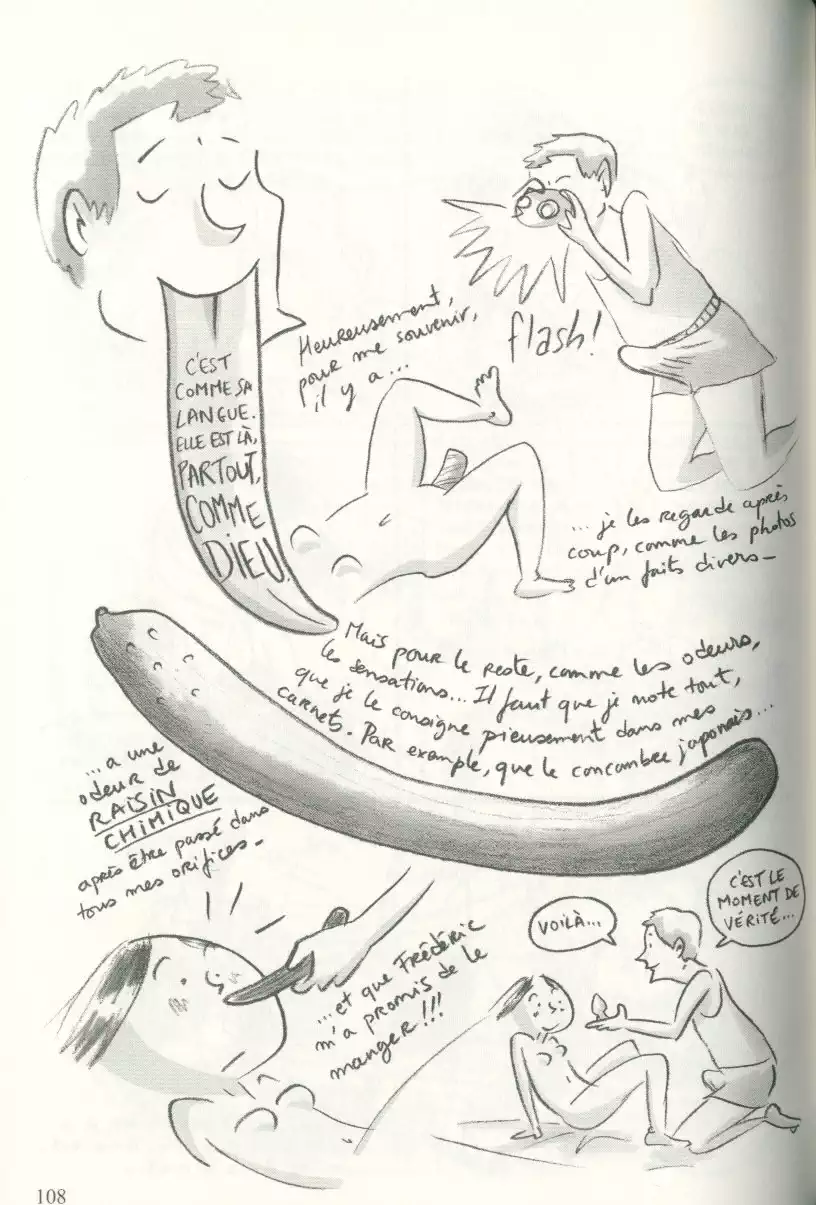 C'EST
COMME SA
LANGUE.
ELLE EST LÀ,
PARTOUT,
COMME
DIEU.
Heureusement,
pour me souvenir,
il y a...
flash!
... je les regarde après
coup, comme les photos
d'un faits divers_
Mais pour le reste, comme les odeurs,
les sensations... Il faut que je note tout,
que je le consigne pieusement dans mes
carnets. Par exemple, que le concombre japonais...
... a une
odeur de
RAISIN
CHIMIQUE
après être passé dans
tous mes orifices_
...et que Frédéric
m'a promis de le
manger!!!
VOILÀ...
C'EST LE
MOMENT DE
VÉRITÉ...
108